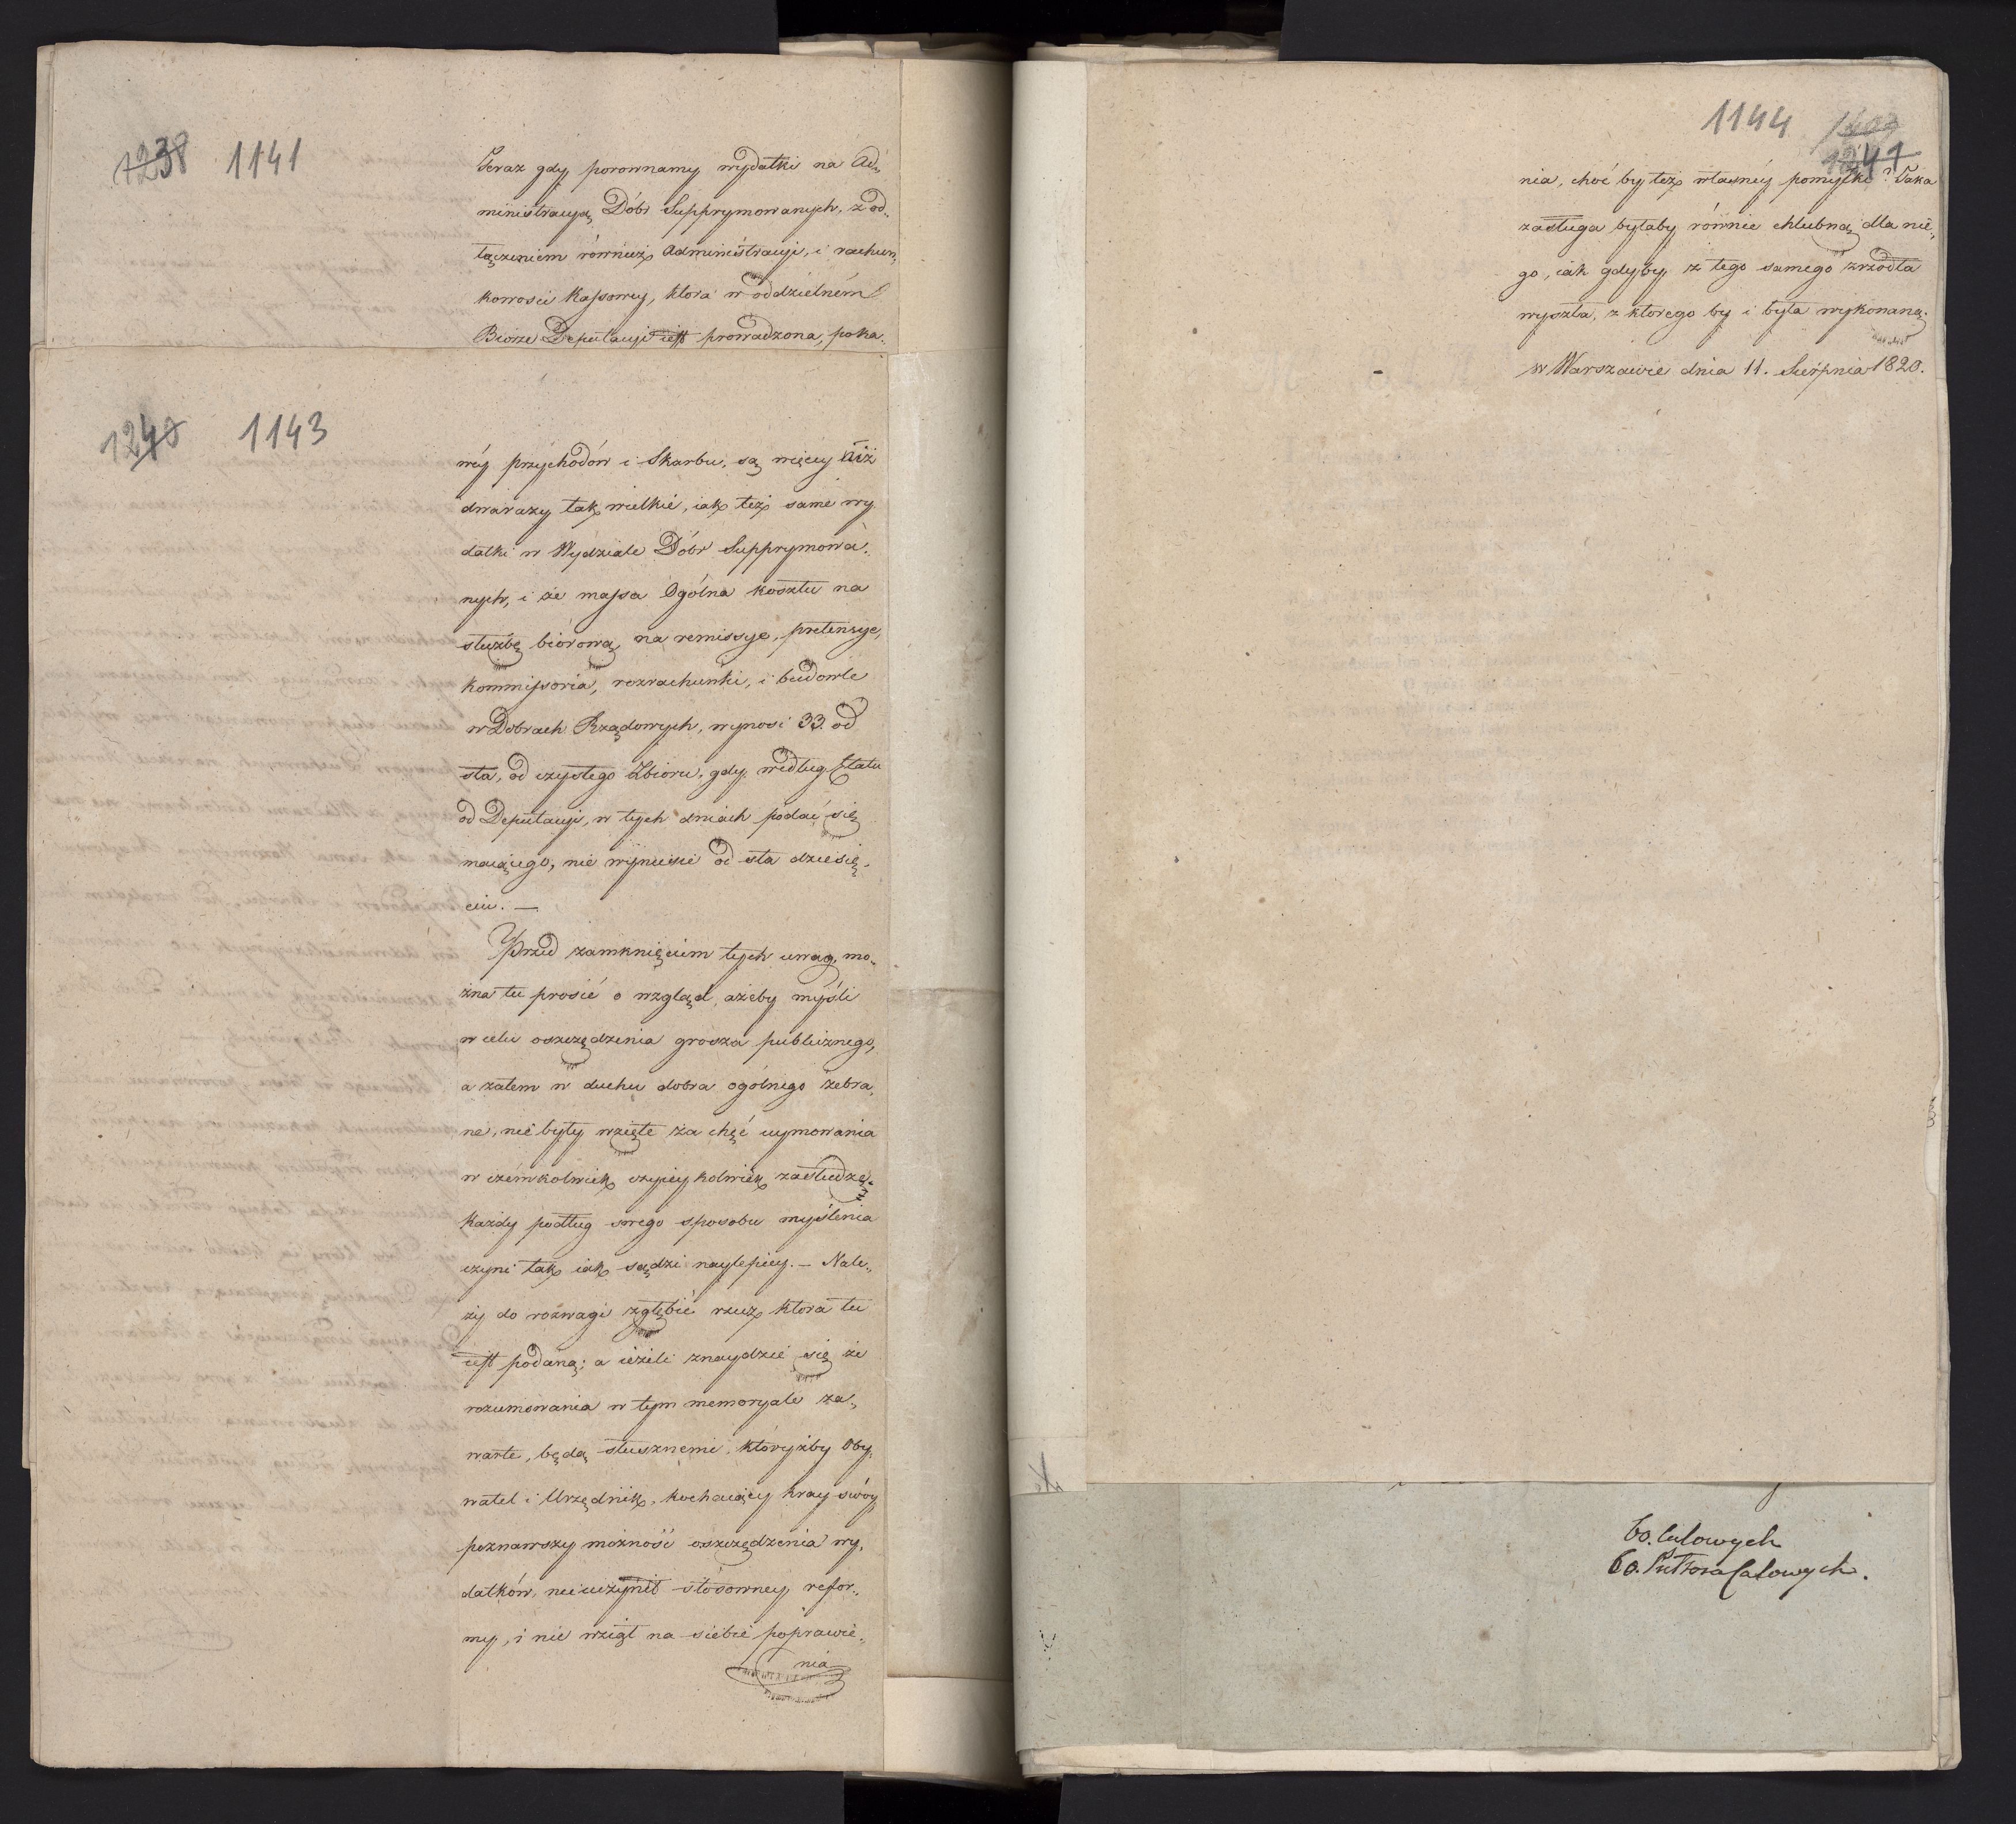 1238 1141
Teraz gdy porownamy wydatki na Ad„
ministracyą Dóbr Supprymowanych, z od„
łączeniem równiéż Administracyi, i rachun„
kowosci Kassowey, ktora w oddzielném
Biorze Deputacyi iest prowadzona, poka„
1240 1143
wéy przychodów i Skarbu, są więcey niż
dwarazy tak wielkie, iak też same wy
datki w Wydziale Dóbr Supprymowa„
nych, i że massa Ogólna kosztu na
służbę biórową, na remissye, pretensye,
kommissoria, rozrachunki, i budowle
w Dobrach Rządowych, wynosi 33. od
sta, od czystego Zbioru, gdy według Etatu
od Deputacyi, w tych dniach podać się
maiącego, nie wyniesie od sta dziesię„
ciu. —
Przed zamknięciem tych uwag, mo„
żna tu prosić o wzgląd, ażeby myśli
w celu oszczędzenia grosza publicznego,
a zatem w duchu dobra ogólnego zebra„
ne, nie były wzięte za chęć uymowania
w czémkolwiek czyieykolwiek zasłudze„
Każdy podług swego sposobu myślenia
czyni tak iak sądzi naylepiey. — Nale„
ży do rozwagi zgłębić rzecz ktora tu
iest podaną; a ieżeli znaydzie się że
rozumowania w tym memoryale za„
warte, będą słusznemi, któryżby Oby„
watel i Urzędnik, kochaiący kray swóy
poznawszy możność oszczędzenia wy„
datków, nie uczynił stósowney refor„
my, i nie wziął na siebie poprawie„
nia
1144 1403
1241
nia, choć by też własnéy pomyłki? Taka
zasługa byłaby równie chlubną dla nie„
go, iak gdyby z tego samego zrzodła
wyszła, z ktorego by i była wykonaną.
w Warszawie dnia 11. Sierpnia 1820.
60. Calowych
60. Półtora Calowych.